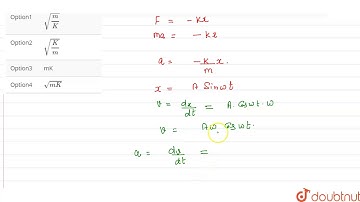 Option1 √m/K
Option2 √K/m
Option3 mK
Option4 √mK
F = -kx
ma = -kx
a = -K/m x.
x = A Sinωt
v = dx/dt = A. Cosωt. ω
v = Aω. Cosωt.
a = dv/dt =
doubtnut